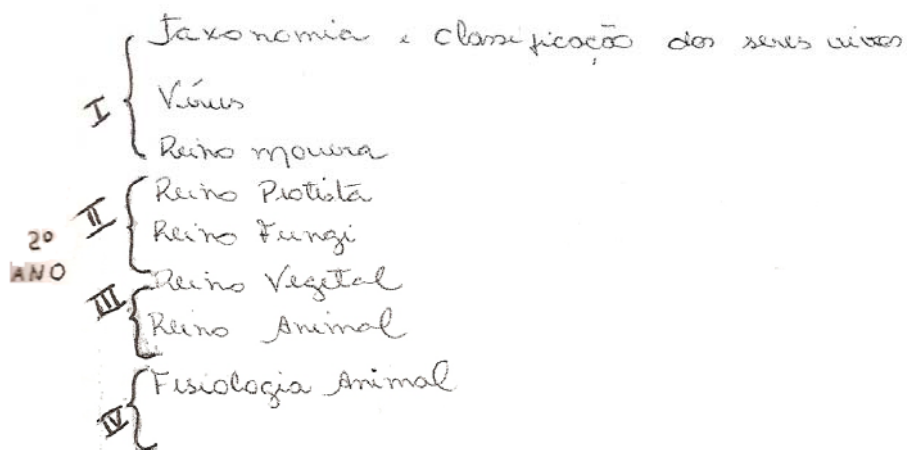 Taxonomia e classificação dos seres vivos
I
Vírus
Reino monera
Reino Protista
II
Reino Fungi
2º
ANO
Reino Vegetal
III
Reino Animal
Fisiologia Animal
IV